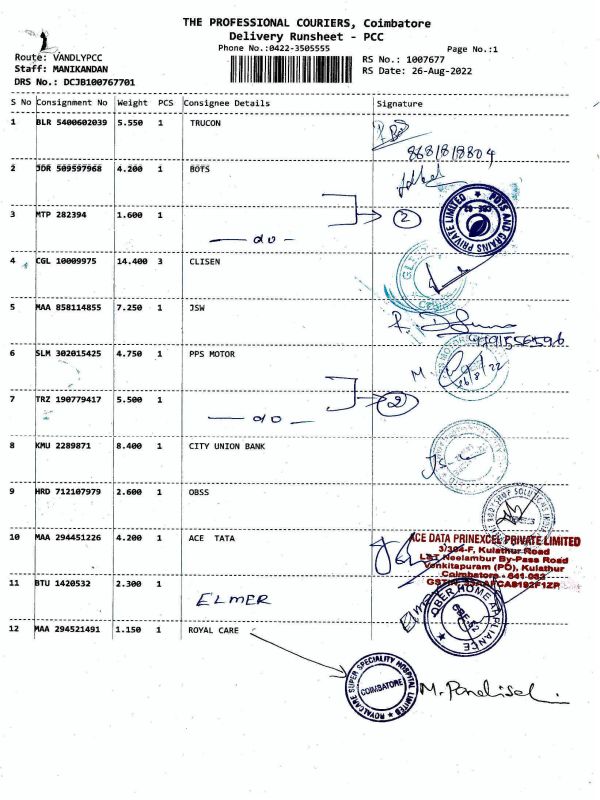 THE PROFESSIONAL COURIERS, Coimbatore
Delivery Runsheet - PCC
Phone No.:0422-3505555
Page No.:1
Route: VANDLYPCC
Staff: MANIKANDAN
DRS No.: DCJB100767701
RS No.: 1007677
RS Date: 26-Aug-2022
S No Consignment No Weight PCS Consignee Details Signature
1 BLR 5400602039 5.550 1 TRUCON
8681818804
2 JDR 509597968 4.200 1 BOTS
3 MTP 282394 1.600 1
do
2
POTS AND GRAINS PRIVATE LIMITED
4 CGL 10009975 14.400 3 CLISEN
5 MAA 858114855 7.250 1 JSW
6 SLM 302015425 4.750 1 PPS MOTOR
26/8/22
7 TRZ 190779417 5.500 1
do
2
8 KMU 2289871 8.400 1 CITY UNION BANK
9 HRD 712107979 2.600 1 OBSS
10 MAA 294451226 4.200 1 ACE TATA
ACE DATA PRINEXCEL PRIVATE LIMITED
3/304-F, Kulathur Road
L&T Neelambur By-Pass Road
Venkitapuram (PO), Kulathur
Coimbatore - 641 062
11 BTU 1420532 2.300 1
ELMER
12 MAA 294521491 1.150 1 ROYAL CARE
ROYALCARE SUPER SPECIALITY HOSPITAL LIMITED
COIMBATORE